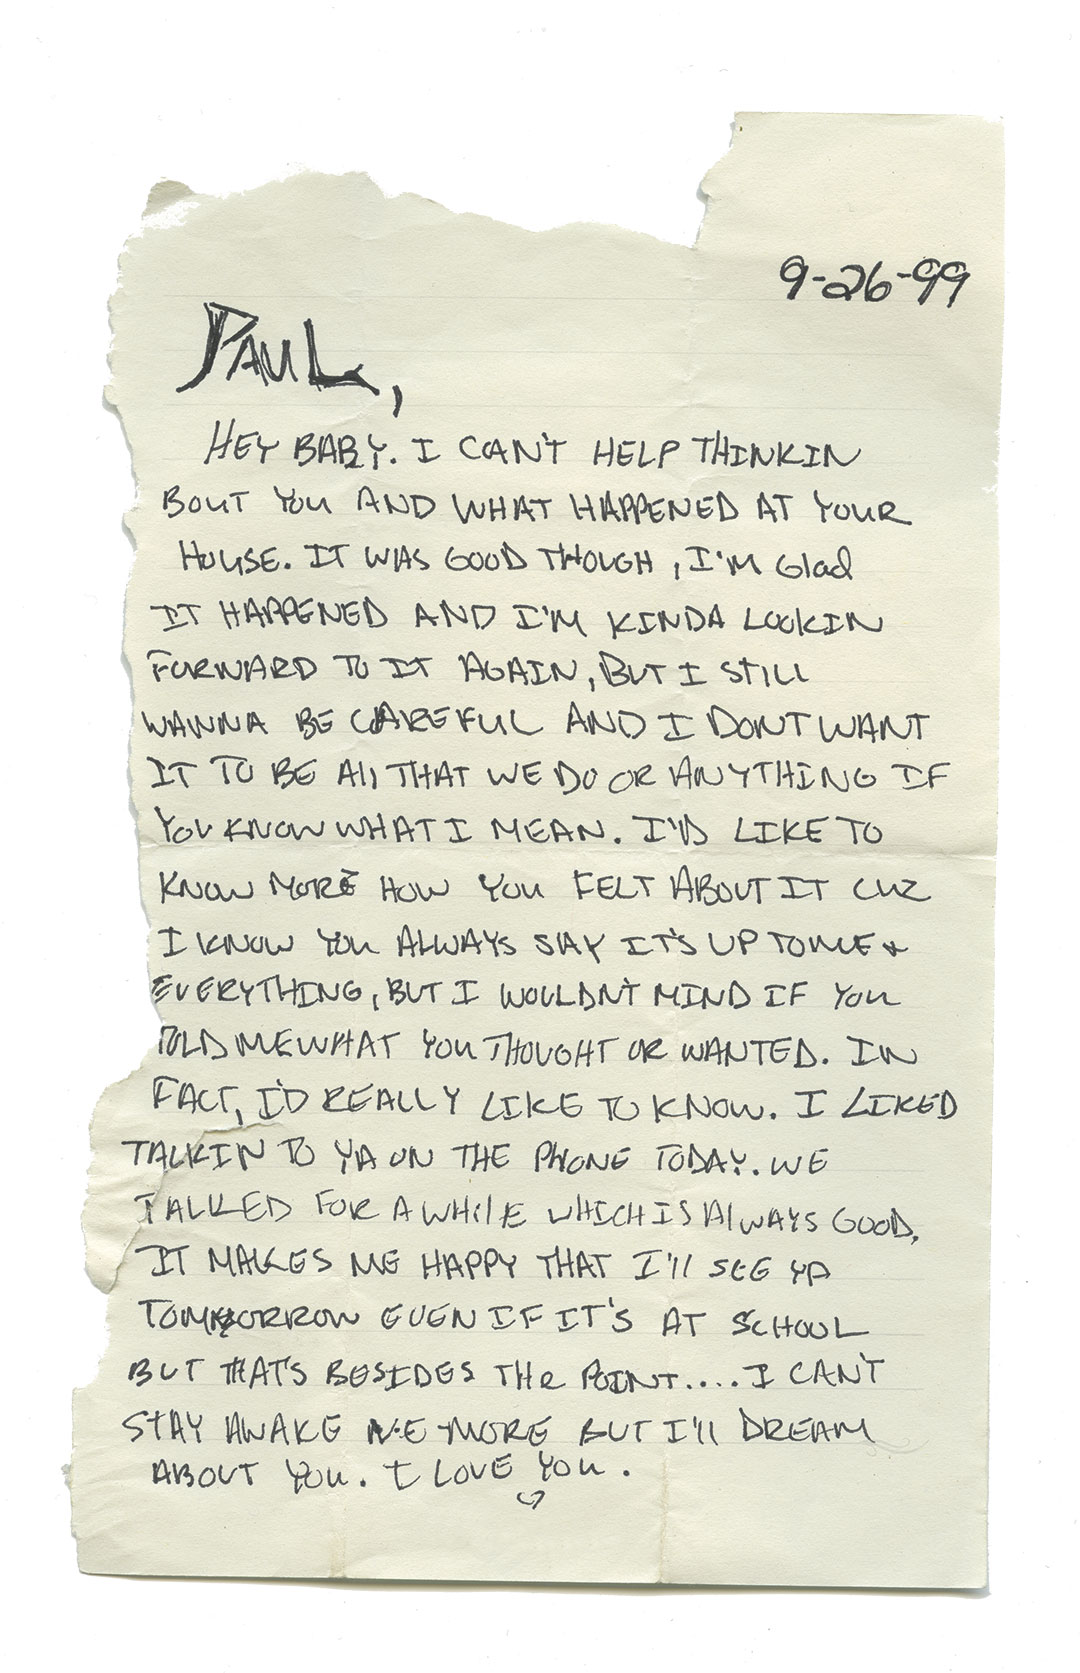 9-26-99
PAUL,
HEY BABY. I CAN'T HELP THINKIN
BOUT YOU AND WHAT HAPPENED AT YOUR
HOUSE. IT WAS GOOD THOUGH, I'M Glad
IT HAPPENED AND I'M KINDA LOOKIN
FORWARD TO IT AGAIN, BUT I STILL
WANNA BE CAREFUL AND I DONT WANT
IT TO BE All THAT WE DO OR ANYTHING IF
YOU KNOW WHAT I MEAN. I'D LIKE TO
KNOW MORE HOW YOU FELT ABOUT IT CUZ
I KNOW YOU ALWAYS SAY IT'S UP TO ME &
EVERYTHING, BUT I WOULDN'T MIND IF YOU
TOLD ME WHAT YOU THOUGHT OR WANTED. IN
FACT, I'D REALLY LIKE TO KNOW. I LIKED
TALKIN TO YA ON THE PHONE TODAY. WE
TALKED FOR A WHIlE WHICH IS AlWAYS GOOD.
IT MAKES ME HAPPY THAT I'll SEE YA
TOMORROW EVEN IF IT'S AT SCHOOL
BUT THAT'S BESIDES THe POINT.... I CAN'T
STAY AWAKE NE MORE BUT I'll DREAM
ABOUT YOU. I LOVE YOU.